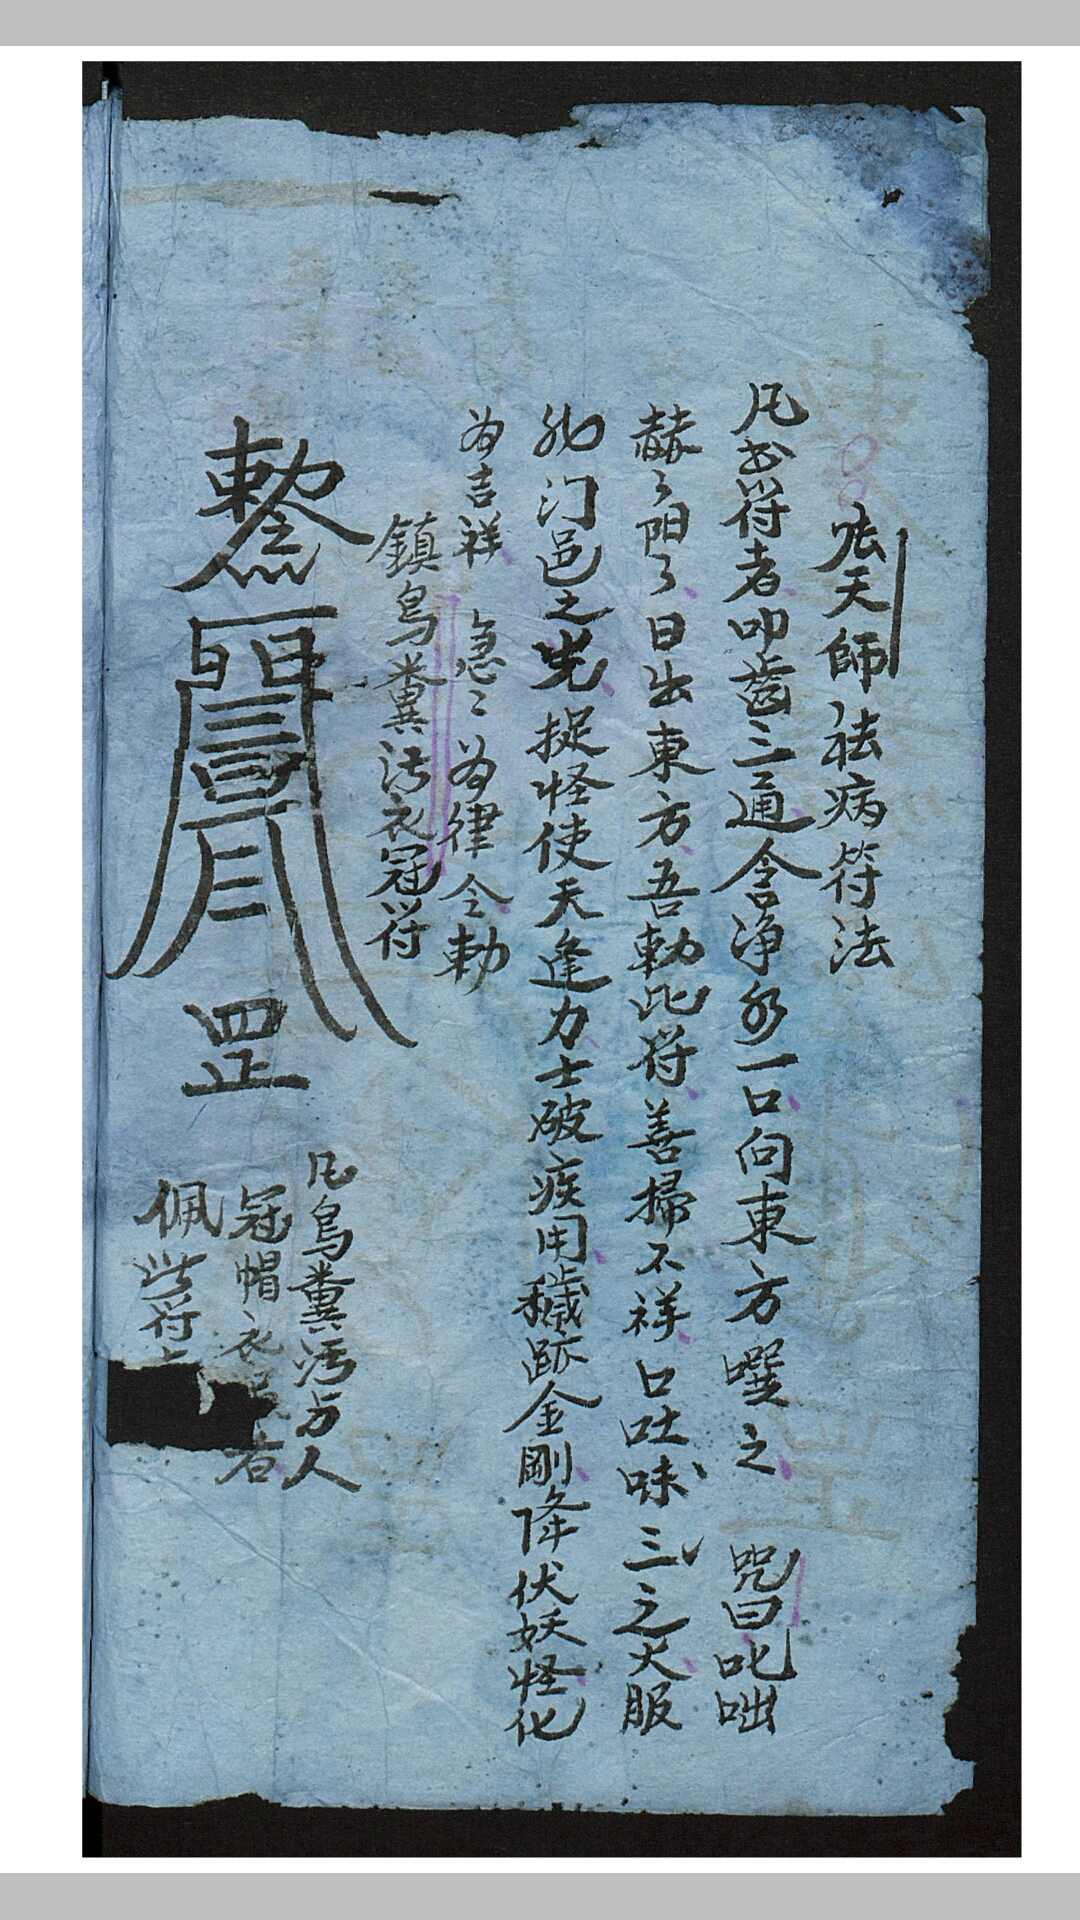 張天師祛病符法
凡书符者叩齒三通含净水一口向東方噀之咒曰叱咄
赫々陽々日出東方吾勅此符善掃不祥口吐味三之火服
飛门邑之光捉怪使天逢力士破疾用穢跡金剛降伏妖怪化
为吉祥急〻为律令勅
鎮鳥糞污衣冠符
罡
凡鳥糞污与人
冠帽衣
佩此符